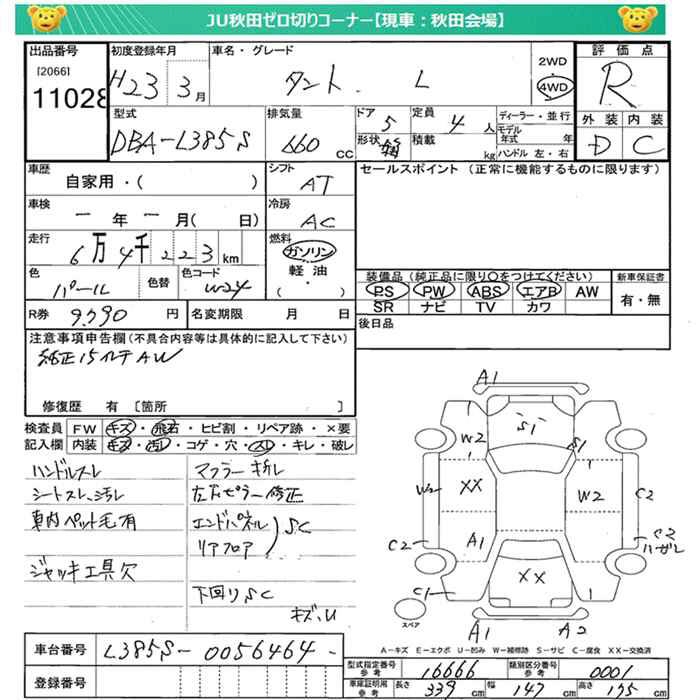 JU秋田ゼロ切りコーナー【現車：秋田会場】
出品番号
[2066]
11028
初度登録年月
H23 3月
車名・グレード
タント L
2WD
4WD
評価点
R
外装 内装
D C
型式
DBA-L385S
排気量
660 CC
ドア
5
形状
定員
4人
積載
kg
ディーラー・並行
モデル年式 年
ハンドル 左・右
車歴
自家用・( )
シフト
AT
車検
ー年ー月( 日)
冷房
AC
走行
6万4千223km
燃料
ガソリン
軽油
( ・ )
色
パール
色替
色コード
W24
R券 9,990 円
名変期限 月 日
セールスポイント (正常に機能するものに限ります)
装備品(純正品に限り○をつけてください)
PS PW ABS エアB AW
SR ナビ TV カワ
新車保証書
有・無
後日品
注意事項申告欄(不具合内容等は具体的に記入して下さい)
純正15インチAW
修復歴 有 〔箇所 〕
検査員記入欄
FW キズ・飛石・ヒビ割・リペア跡・×要
内装 キズ・汚レ・コゲ・穴・スレ・キレ・破レ
ハンドルスレ
シートスレ、汚レ
車内ペット毛有
ジャッキ工具欠
マフラーキレ
左右ピラー修正
エンドパネル
リアフロア
SC
下回りSC
キズ、U
A1
S1
S1
W2
W2
XX
W2
C2
C2
A1
C2
ハガレ
XX
C1
A1
A2
スペア
A－キズ E－エクボ U－凹み W－補修跡 S－サビ C－腐食 XX－交換済
車台番号 L385S-0056464-
登録番号
型式指定番号 参考 16666
類別区分番号 参考 0001
車庫証明用 参考 長さ 339 cm 幅 147 cm 高さ 175 cm